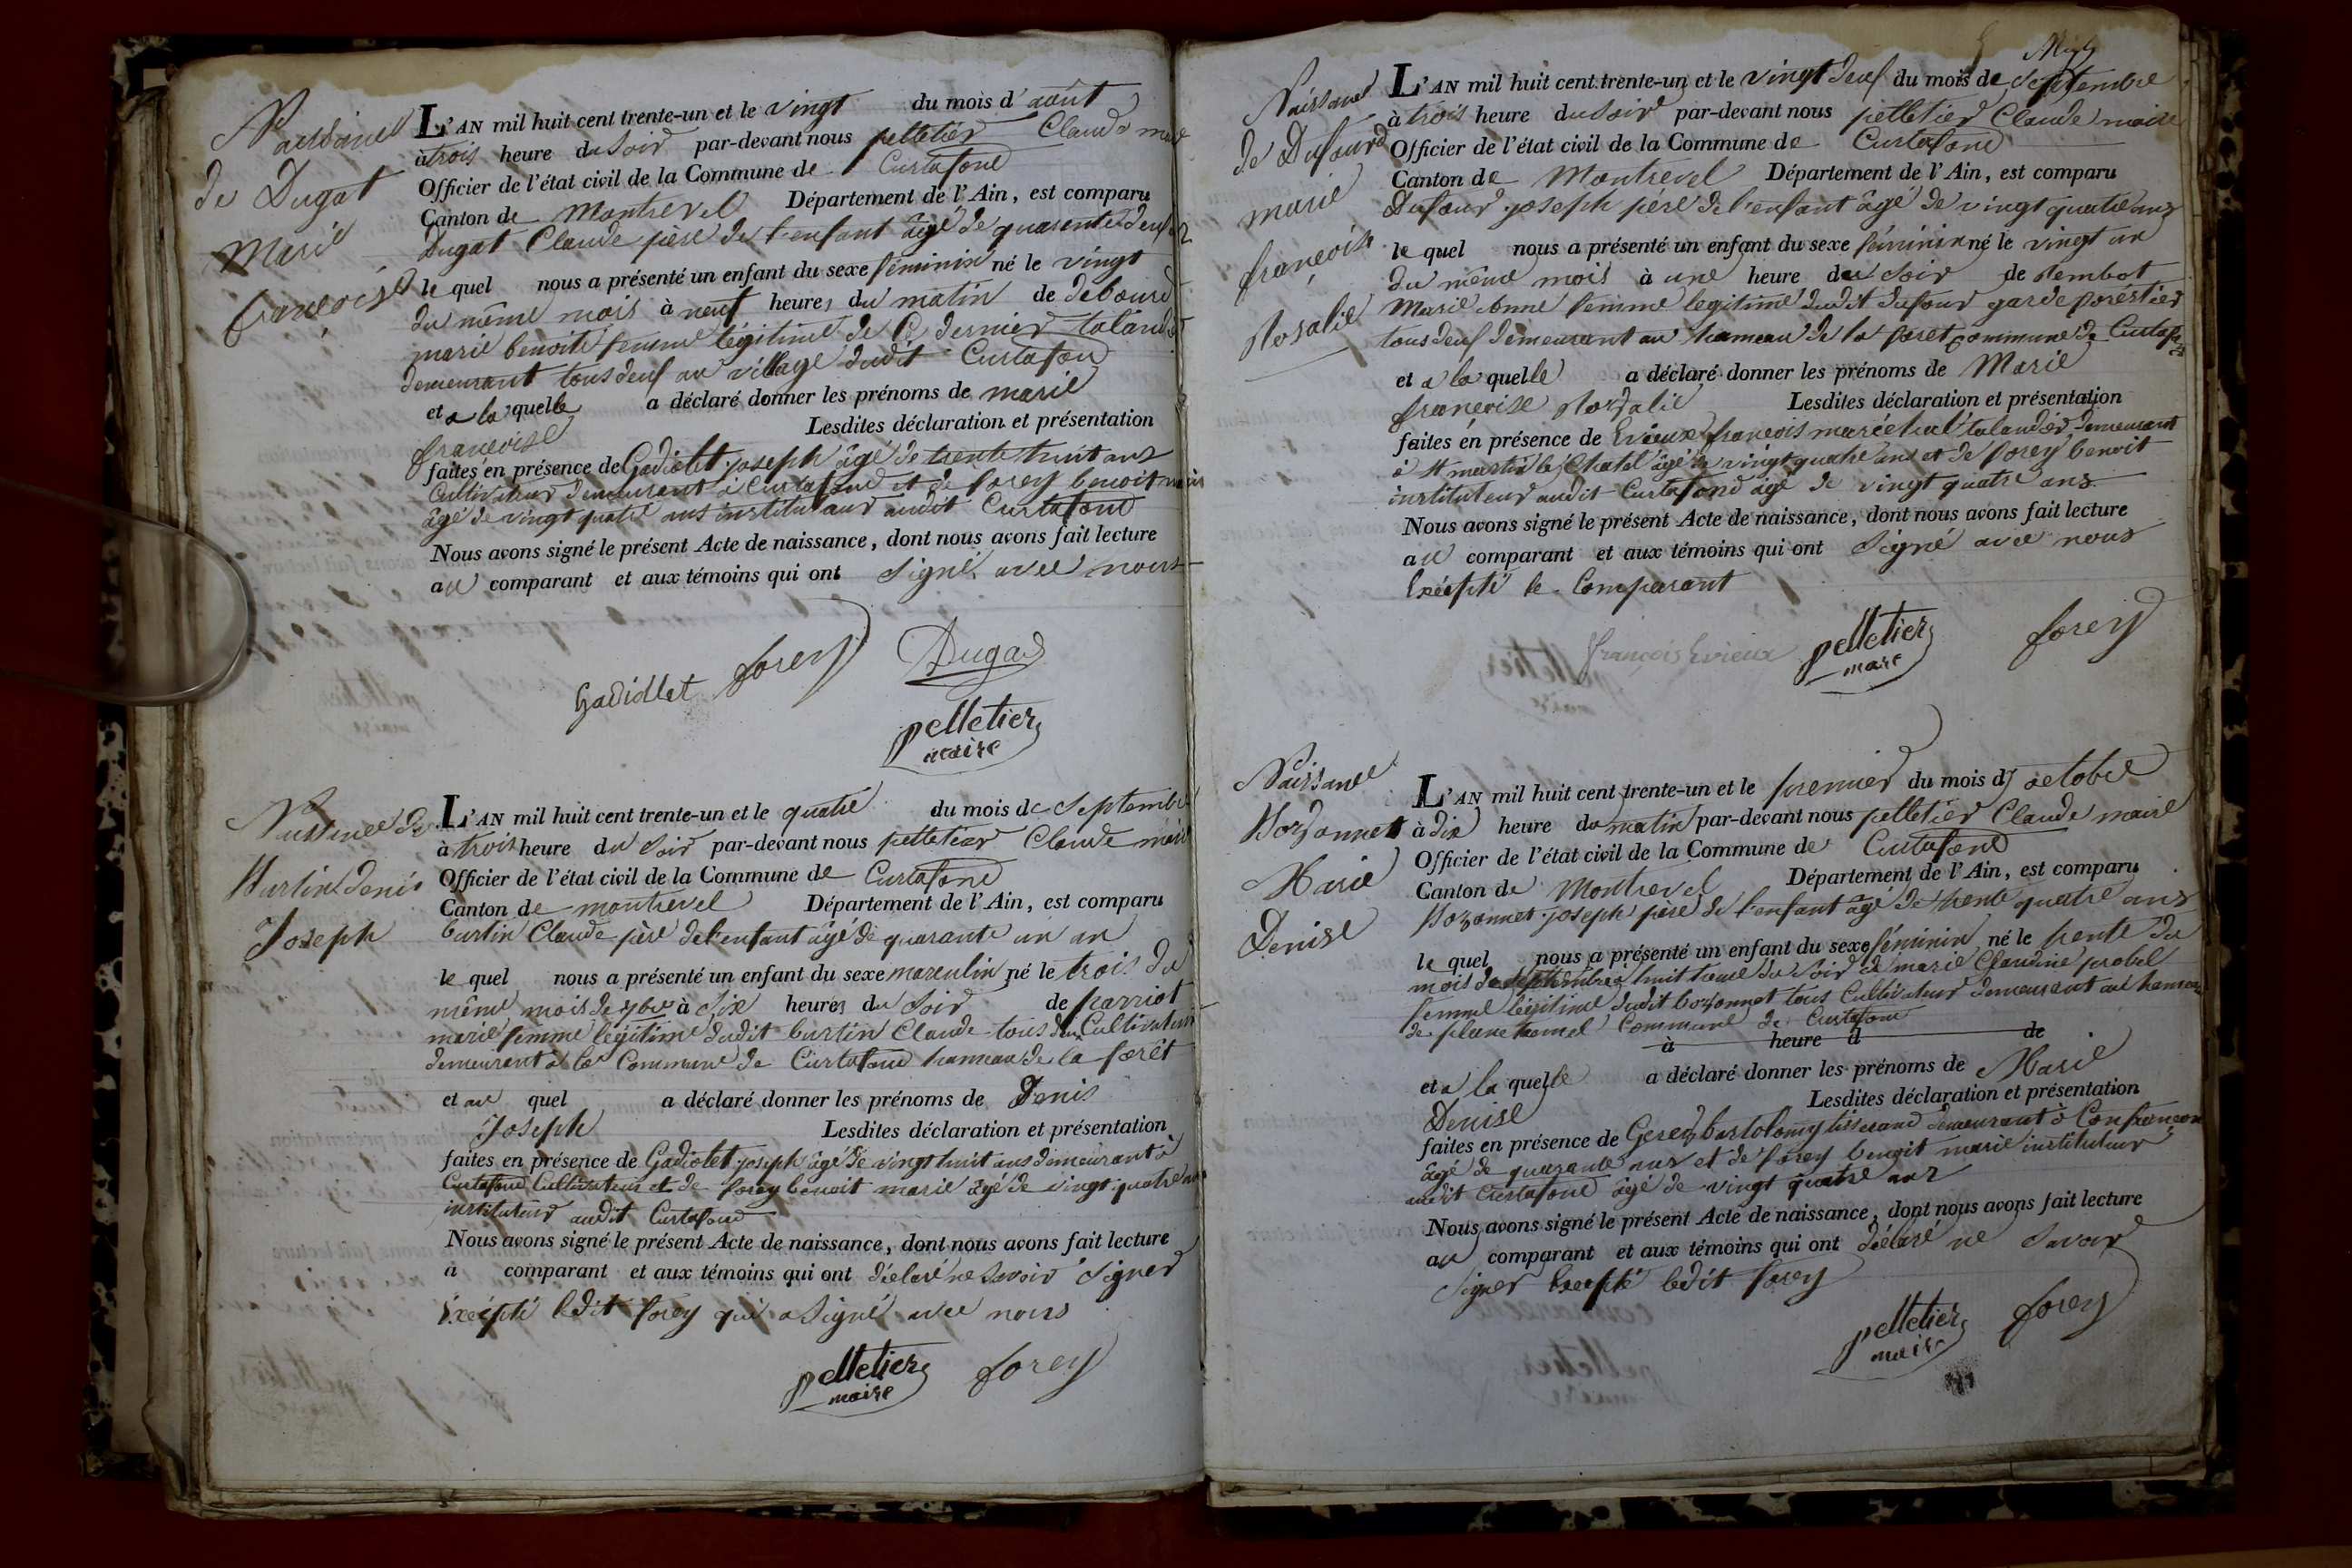 Naissance
de Dugat
Marie
françoise
L'AN mil huit cent trente-un et le vingt du mois d'août
à trois heure du Soir par-devant nous pelletier Claude maire
Officier de l'état civil de la Commune de Curtafond
Canton de Montrevel Département de l'Ain, est comparu
Dugat Claude père de l'enfant âgé de quarente deuf
le quel nous a présenté un enfant du sexe féminin né le vingt
du même mois à neuf heures du matin de debourd
marie benoite femme légitime de Ce dernier
demeurant tous deuf au village dudit Curtafond
et a la quelle a déclaré donner les prénoms de marie
françoise Lesdites déclaration et présentation
faites en présence de Gadiolet joseph âgé de trente huit ans
Cultivateur demeurant à Curtafond et de forey benoit marie
âgé de vingt quatre ans instituteur audit Curtafond
Nous avons signé le présent Acte de naissance, dont nous avons fait lecture
au comparant et aux témoins qui ont Signé avec nous
Gadiollet forey Dugas
pelletier
maire
Naissance de
Burtin denis
Joseph
L'AN mil huit cent trente-un et le quatre du mois de Septembre
à trois heure du Soir par-devant nous pelletier Claude maire
Officier de l'état civil de la Commune de Curtafond
Canton de montrevel Département de l'Ain, est comparu
burtin Claude père de l'enfant âgé de quarante un an
le quel nous a présenté un enfant du sexe masculin né le trois du
même mois de 7bre à Six heures du Soir de parriot
marie femme légitime dudit burtin Claude tous deux Cultivateurs
demeurant à la Commune de Curtafond hameau de la forêt
et au quel a déclaré donner les prénoms de Denis
Joseph Lesdites déclaration et présentation
faites en présence de Gadiolet joseph âgé de vingt huit ans demeurant à
Curtafond Cultivateur et de forey benoit marie âgé de vingt quatre ans
instituteur audit Curtafond
Nous avons signé le présent Acte de naissance, dont nous avons fait lecture
a comparant et aux témoins qui ont déclaré ne Savoir Signer
Excépté ledit forey qui a Signé avec nous
pelletier forey
maire
Naissance
de Dufour
marie
françoise
Rosalie
L'AN mil huit cent trente-un et le vingt deuf du mois de Septembre
à trois heure du Soir par-devant nous pelletier Claude maire
Officier de l'état civil de la Commune de Curtafond
Canton de Montrevel Département de l'Ain, est comparu
Dufour joseph père de l'enfant âgé de vingt quatre ans
le quel nous a présenté un enfant du sexe féminin né le vingt un
du même mois à une heure du Soir de
Marie anne femme legitime dudit dufour garde foréstier
tous deuf demeurant au hameau de la foret Commune de Curtafond
et a la quelle a déclaré donner les prénoms de Marie
françoise Rosalie Lesdites déclaration et présentation
faites en présence de Evieux françois maréchal talandier demeurant
à St martin le Chatel âgé de vingt quatre ans et de forey benoit
instituteur audit Curtafond âgé de vingt quatre ans
Nous avons signé le présent Acte de naissance, dont nous avons fait lecture
au comparant et aux témoins qui ont Signé avec nous
Excépté le Comparant
françois Evieux pelletier forey
maire
Naissance
Bozonnet
Marie
Denise
L'AN mil huit cent trente-un et le premier du mois d'octobre
à dix heure du matin par-devant nous pelletier Claude maire
Officier de l'état civil de la Commune de Curtafond
Canton de Montrevel Département de l'Ain, est comparu
Bozonnet joseph père de l'enfant âgé de trente quatre ans
le quel nous a présenté un enfant du sexe féminin né le trente du
mois de Septembre à huit heure du Soir de marie Claudine probel
femme légitime dudit bozonnet tous Cultivateur demeurant au hameau
de Commune de Curtafond
à heure d de
et a la quelle a déclaré donner les prénoms de Marie
Denise Lesdites déclaration et présentation
faites en présence de Gerez bartolomy tisserand demeurant à Confrançon
âgé de quarante ans et de forey benoit marie instituteur
audit Curtafond âgé de vingt quatre ans
Nous avons signé le présent Acte de naissance, dont nous avons fait lecture
au comparant et aux témoins qui ont déclaré ne Savoir
Signer Excepté ledit forey
pelletier forey
maire